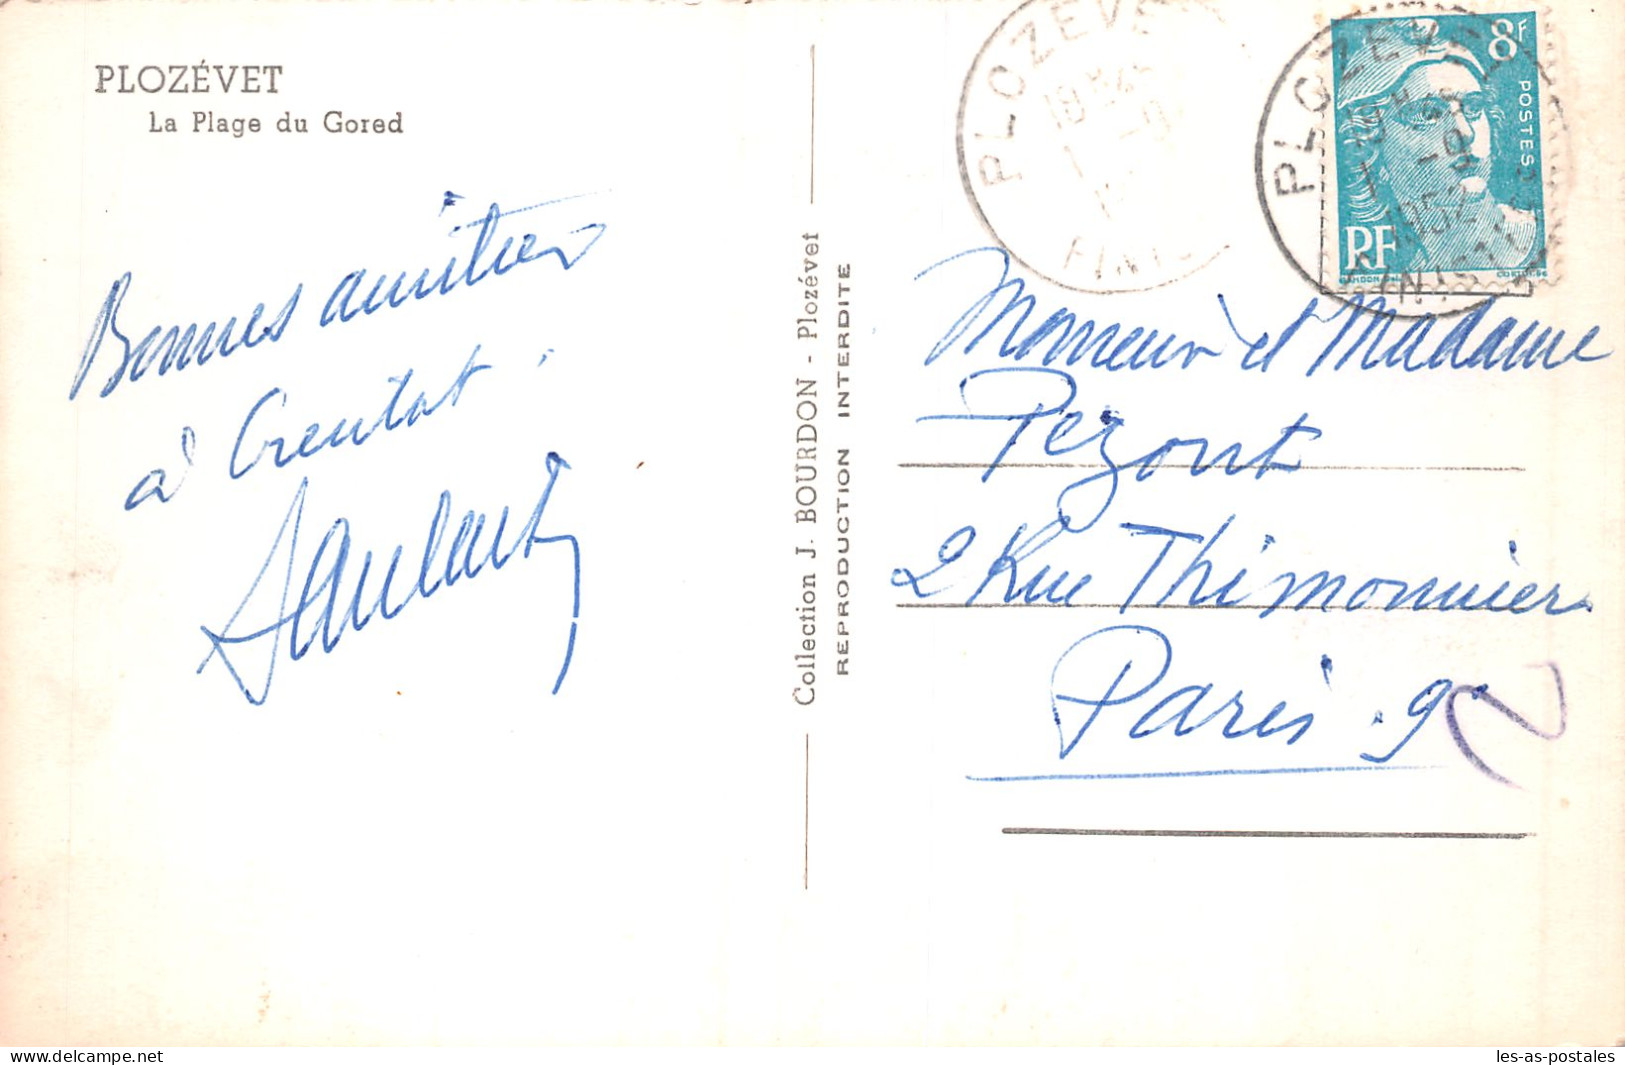 PLOZÉVET
La Plage du Gored
Bonnes amitiés
à
Collection J. BOURDON - Plozévet
REPRODUCTION INTERDITE
PLOZEVE
18
FINIS
PLOZEVET
1952
FINISTERE
8F
POSTES
RF
GANDON
CORTOT
Monsieur et Madame
Pezont
2 Rue Thimonnier
Paris. 9e
delcampe.net
les-as-postales